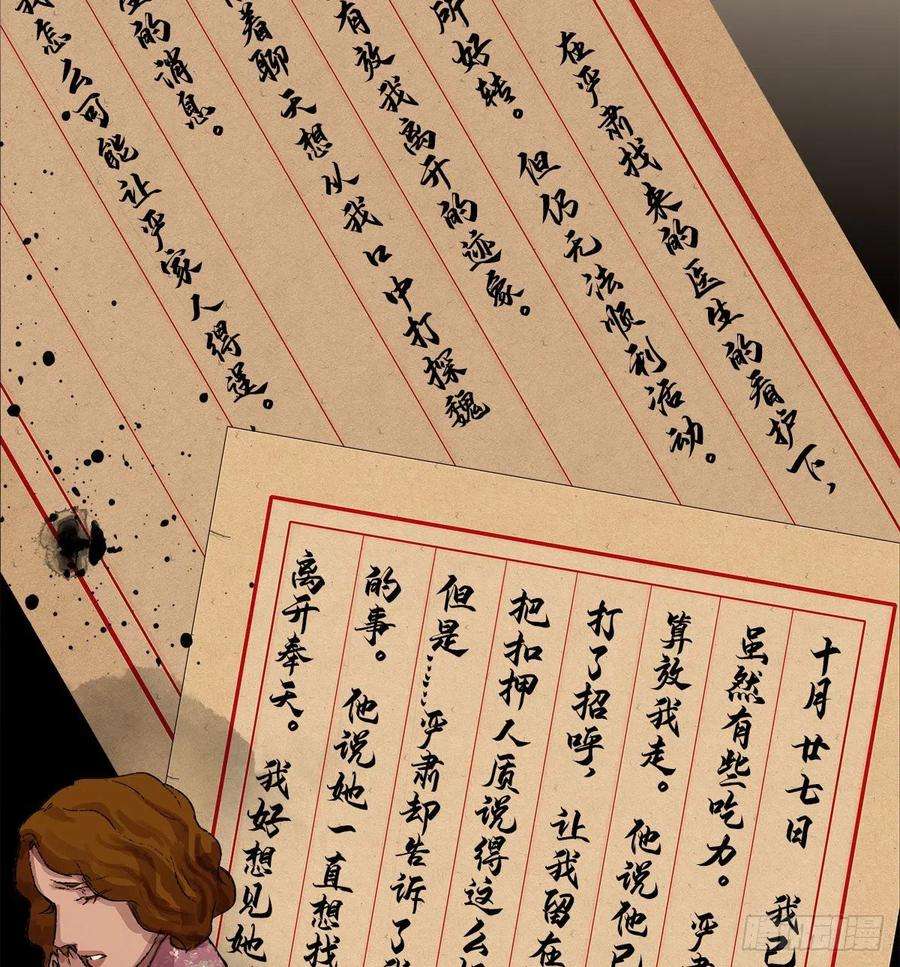 在严肃找来的医生的看护下，
所好转。但仍无法顺利活动。
有效我离开的迹象。
着聊天想从我口中打探魏
的消息。
我怎么可能让严家人得逞。
十月廿七日 我已
虽然有些吃力。严肃
算效我走。他说他已
打了招呼，让我留在
把扣押人质说得这么
但是……严肃却告诉了我
的事。他说她一直想找
离开奉天。我好想见她